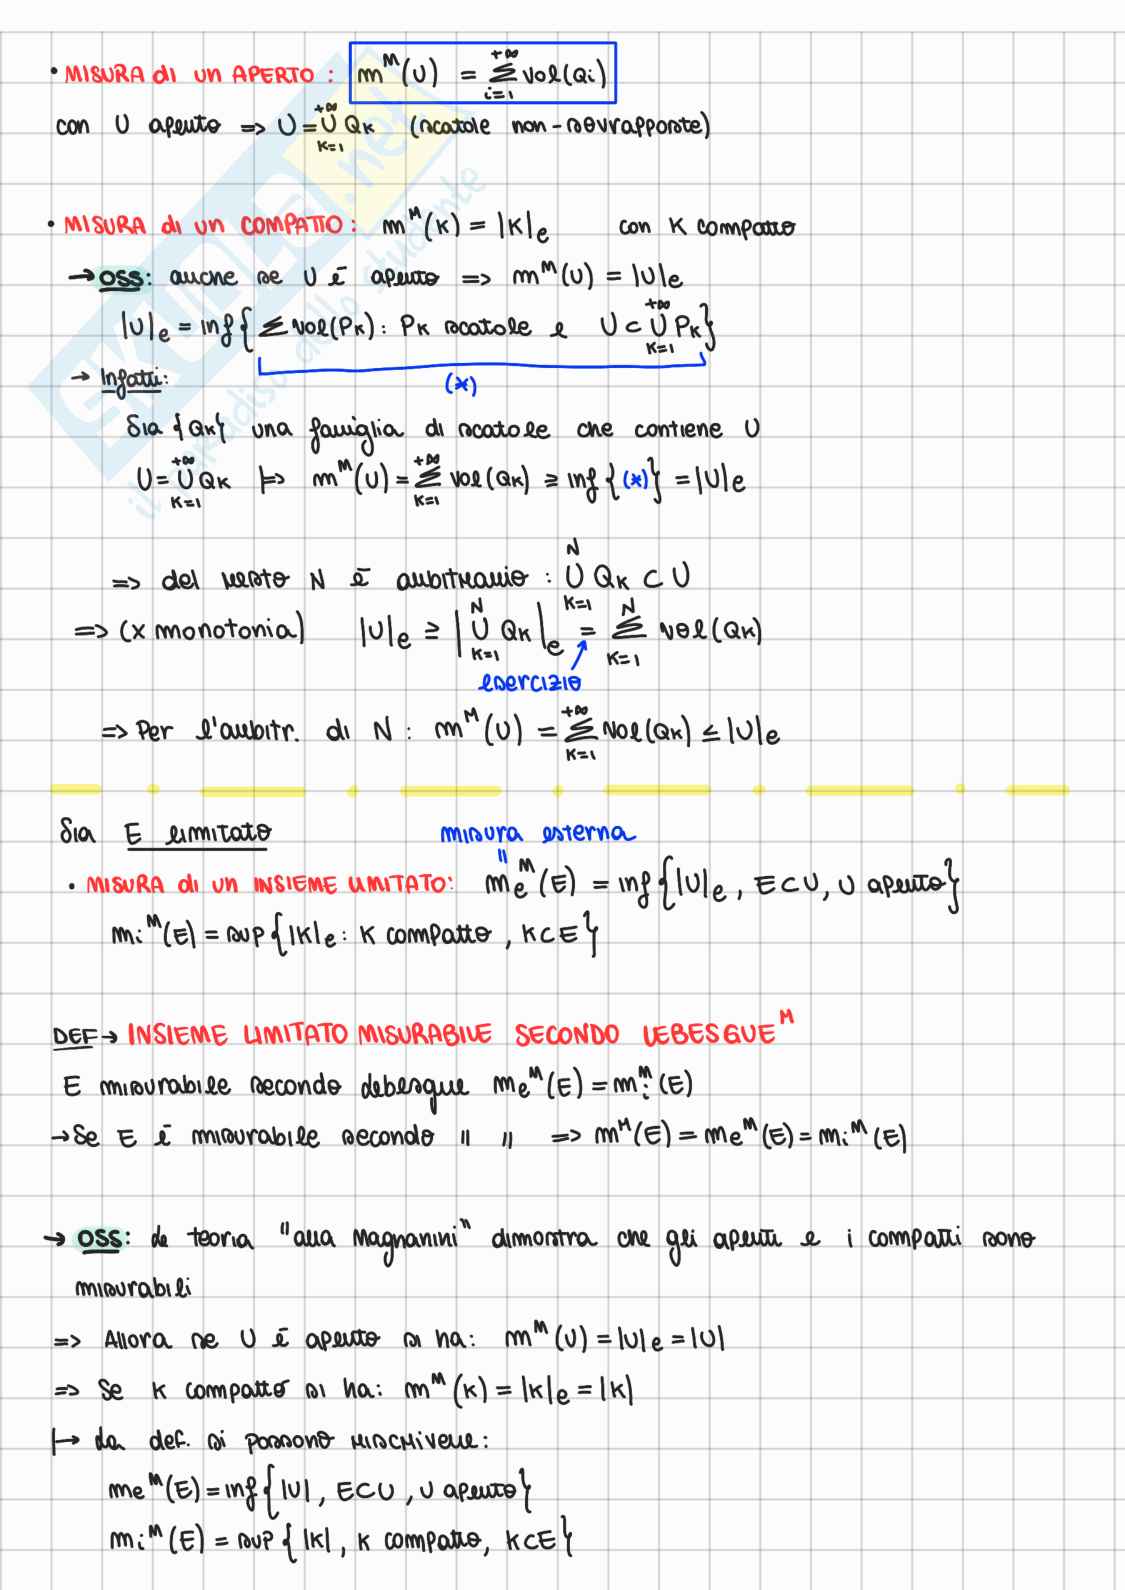 • MISURA di un APERTO: m^M(U) = Σ_{i=1}^{+∞} vol(Qi)
con U aperto => U = ∪_{K=1}^{+∞} Q_K (scatole non-sovrapposte)
• MISURA di un COMPATTO: m^M(K) = |K|_e con K compatto
→ OSS: anche se U è aperto => m^M(U) = |U|_e
|U|_e = inf{ Σ vol(P_K): P_K scatole e U ⊂ ∪_{K=1}^{+∞} P_K }
(*)
→ Infatti:
Sia {Q_K} una famiglia di scatole che contiene U
U = ∪_{K=1}^{+∞} Q_K |=> m^M(U) = Σ_{K=1}^{+∞} vol(Q_K) ≥ inf{(*)} = |U|_e
=> del resto N è arbitrario: ∪_{K=1}^{N} Q_K ⊂ U
=> (x monotonia) |U|_e ≥ |∪_{K=1}^{N} Q_K|_e = Σ_{K=1}^{N} vol(Q_K)
esercizio
=> Per l'arbitr. di N: m^M(U) = Σ_{K=1}^{+∞} vol(Q_K) ≤ |U|_e
Sia E limitato
misura esterna
"
• MISURA di un INSIEME LIMITATO: m_e^M(E) = inf{ |U|_e, E⊂U, U aperto }
m_i^M(E) = sup{ |K|_e: K compatto, K⊂E }
DEF → INSIEME LIMITATO MISURABILE SECONDO LEBESGUE^M
E misurabile secondo Lebesgue m_e^M(E) = m_i^M(E)
→ Se E è misurabile secondo " " => m^M(E) = m_e^M(E) = m_i^M(E)
→ OSS: la teoria "alla Magnanini" dimostra che gli aperti e i compatti sono
misurabili
=> Allora se U è aperto si ha: m^M(U) = |U|_e = |U|
=> Se K compatto si ha: m^M(K) = |K|_e = |K|
|→ La def. si possono riscrivere:
m_e^M(E) = inf{ |U|, E⊂U, U aperto }
m_i^M(E) = sup{ |K|, K compatto, K⊂E }
SKUOLA.net
il paradiso dello studente